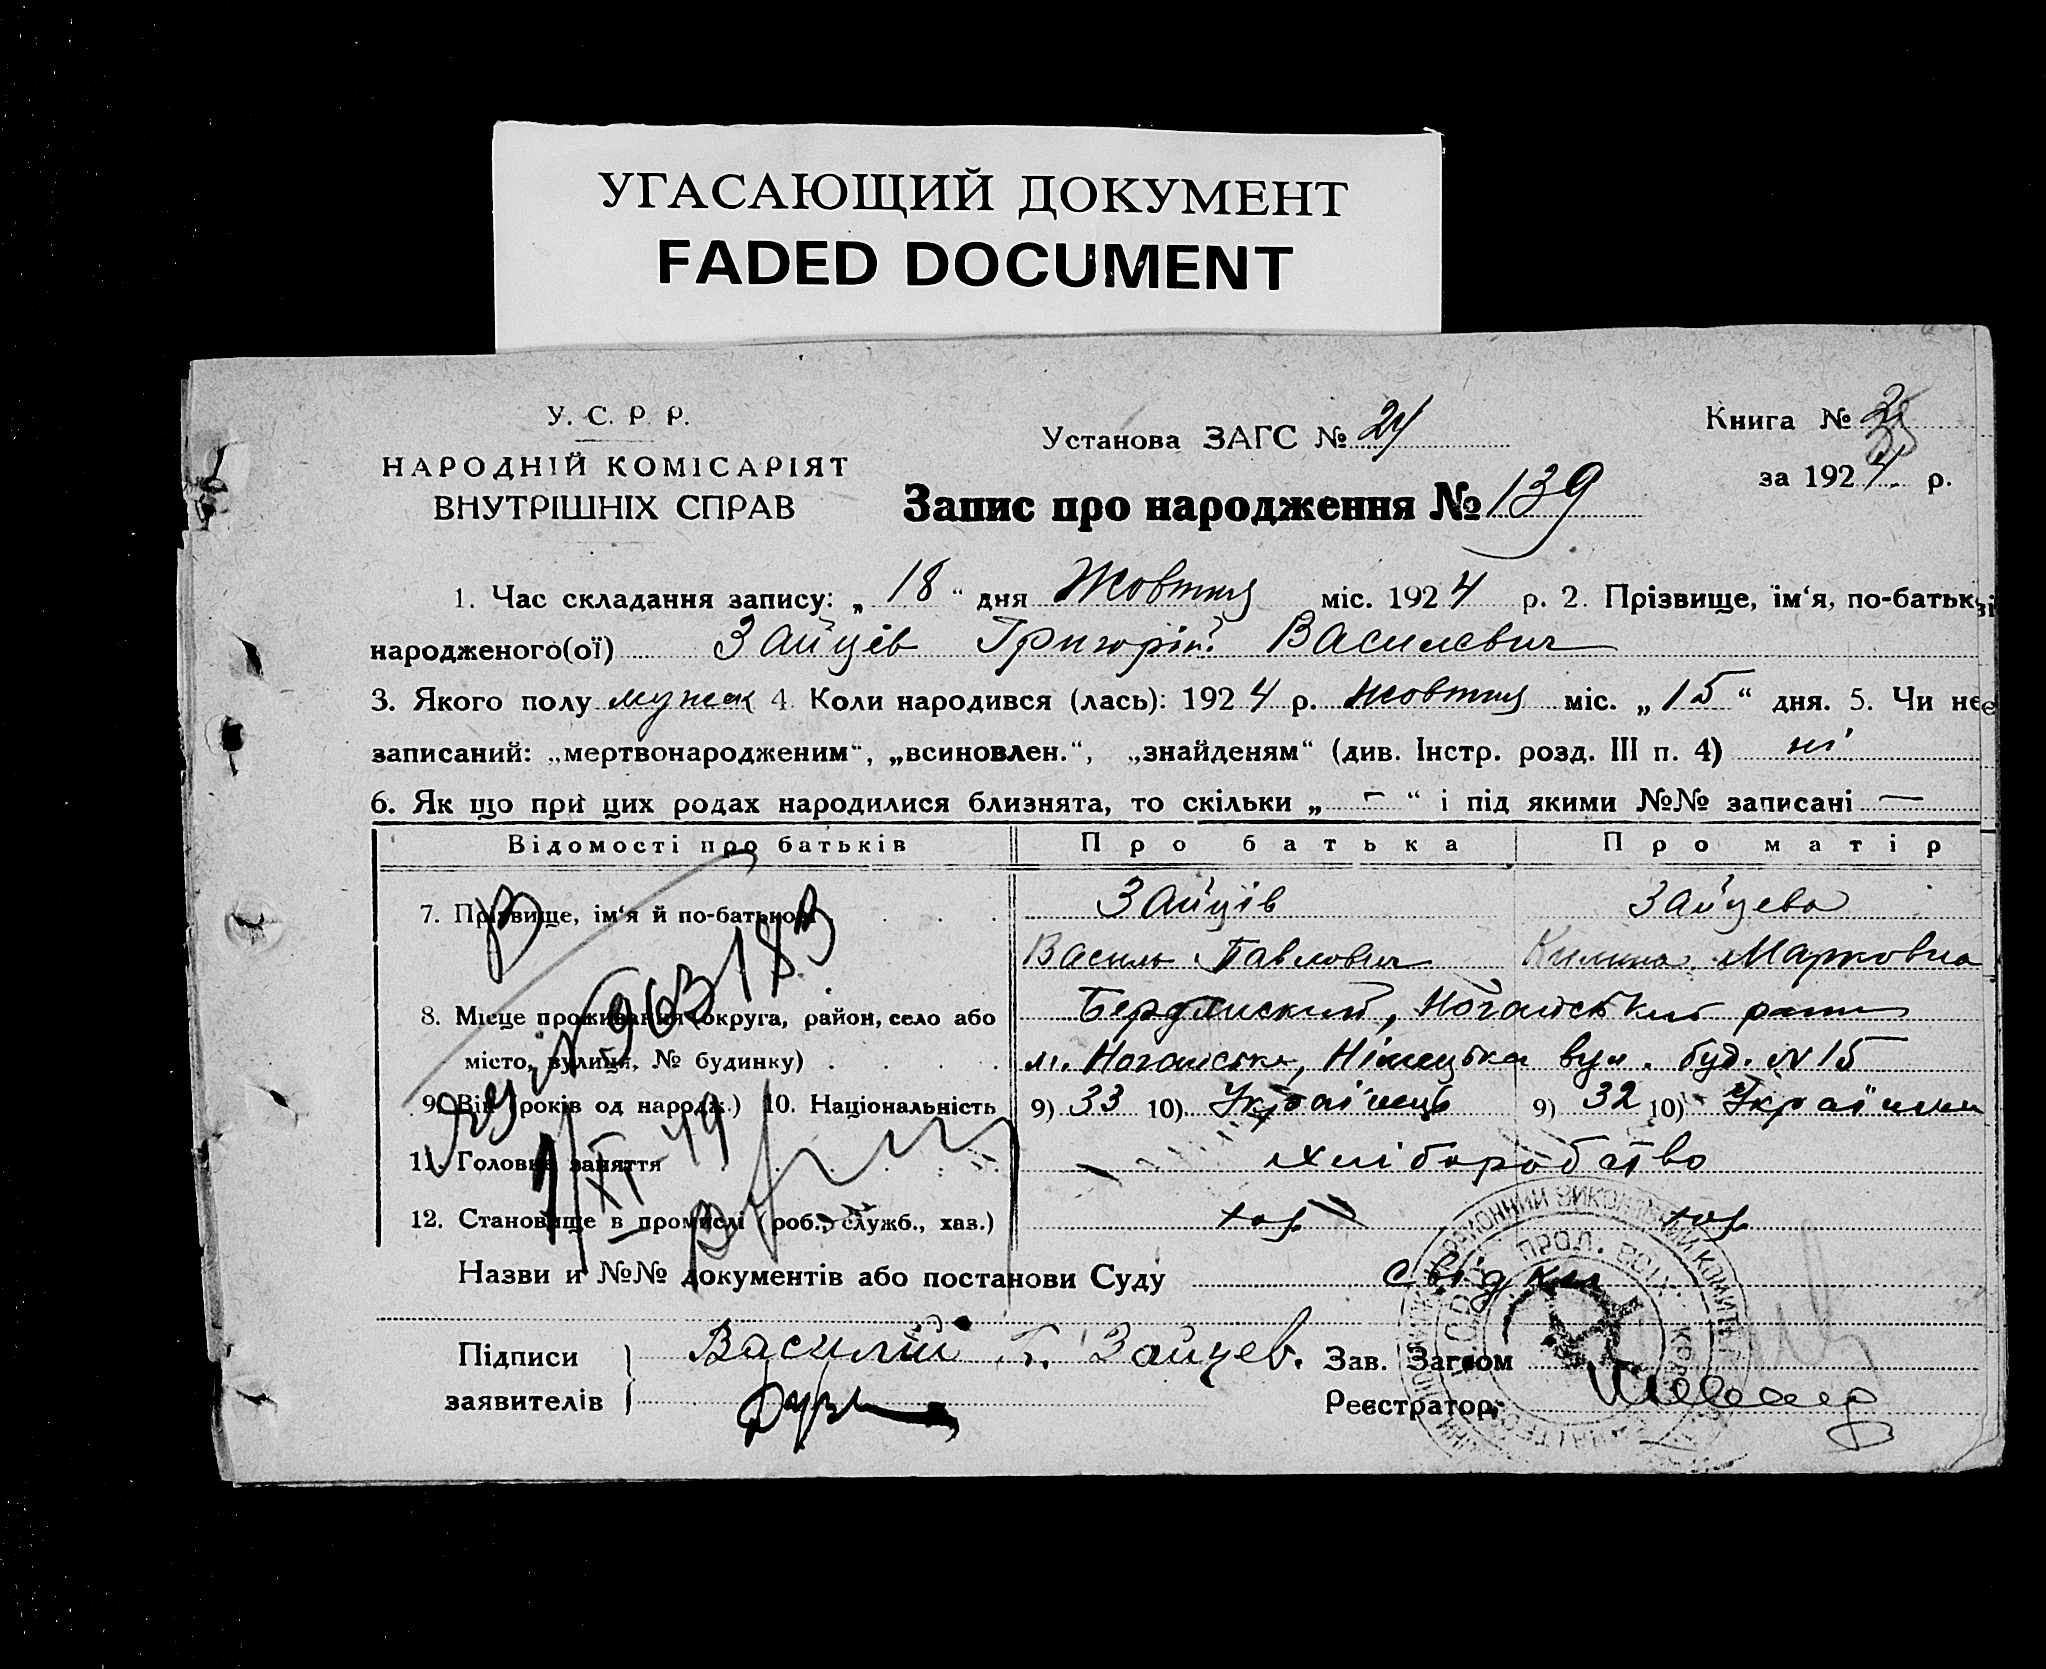 УГАСАЮЩИЙ ДОКУМЕНТ
FADED DOCUMENT
У. С. Р. Р.
НАРОДНІЙ КОМІСАРІЯТ
ВНУТРІШНІХ СПРАВ
Установа ЗАГС № 24
Книга № 2
за 1924 р.
Запис про народження № 139
1. Час складання запису: „ 18 “ дня Жовтня міс. 1924 р. 2. Прізвище, ім‘я, по-батькові
народженого(ої) Зайцев Григорій Василевич
3. Якого полу мужск 4. Коли народився (лась): 1924 р. Жовтня міс. „ 15 “ дня. 5. Чи не є
записаний: „мертвонародженим“, „всиновлен.“, „знайденям“ (див. Інстр. розд. III п. 4) ні
6. Як що при цих родах народилися близнята, то скільки „ — “ і під якими №№ записані —
Відомості про батьків Про батька Про матір
7. Прізвище, ім‘я й по-батькові . . . . Зайців Зайцева
Василь Павлович Килина Марковна
8. Місце проживання (округа, район, село або Бердянский, Ногайський район
місто, вулиця, № будинку) . . . . м. Ногайське, Німецька вул. буд. № 15
9. Вік (років од народж.) 10. Національність 9) 33 10) Українець 9) 32 10) Українка
11. Головне заняття хліборобство
12. Становище в промислі (роб., служб., хаз.) хаз хаз
Назви и №№ документів або постанови Суду свідки
Підписи Василий П. Зайцев. Зав. Загсом
заявителів Реєстратор